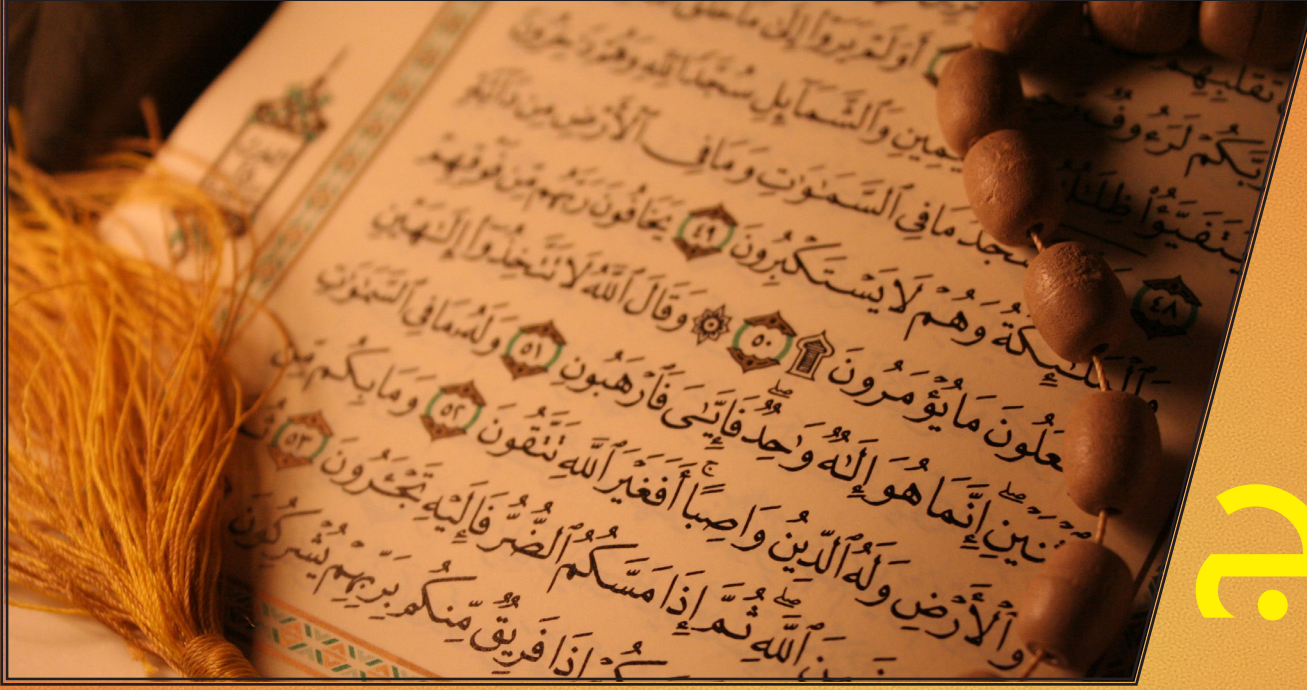 تَقَلُّبِهِمْ
رَبَّكُمْ لَرَءُوفٌ أَوَلَمْ يَرَوْا۟ إِلَىٰ مَا خَلَقَ
يَتَفَيَّؤُا۟ ظِلَٰلُهُۥ وَٱلشَّمَآئِلِ سُجَّدًا لِّلَّهِ وَهُمْ دَٰخِرُونَ
٤٨ مَا فِى ٱلسَّمَٰوَٰتِ وَمَا فِى ٱلْأَرْضِ مِن دَآبَّةٍ
وَٱلْمَلَٰٓئِكَةُ وَهُمْ لَا يَسْتَكْبِرُونَ ٤٩ يَخَافُونَ رَبَّهُم مِّن فَوْقِهِمْ
مَا يُؤْمَرُونَ ۩ ٥٠ ۞ وَقَالَ ٱللَّهُ لَا تَتَّخِذُوٓا۟ إِلَٰهَيْنِ
ٱثْنَيْنِ ۖ إِنَّمَا هُوَ إِلَٰهٌ وَٰحِدٌ ۖ فَإِيَّٰىَ فَٱرْهَبُونِ ٥١ وَلَهُۥ مَا فِى ٱلسَّمَٰوَٰتِ
وَٱلْأَرْضِ وَلَهُ ٱلدِّينُ وَاصِبًا ۚ أَفَغَيْرَ ٱللَّهِ تَتَّقُونَ ٥٢ وَمَا بِكُم مِّن
ٱللَّهِ ۖ ثُمَّ إِذَا مَسَّكُمُ ٱلضُّرُّ فَإِلَيْهِ تَجْـَٔرُونَ ٥٣
إِذَا فَرِيقٌ مِّنكُم بِرَبِّهِمْ يُشْرِكُونَ